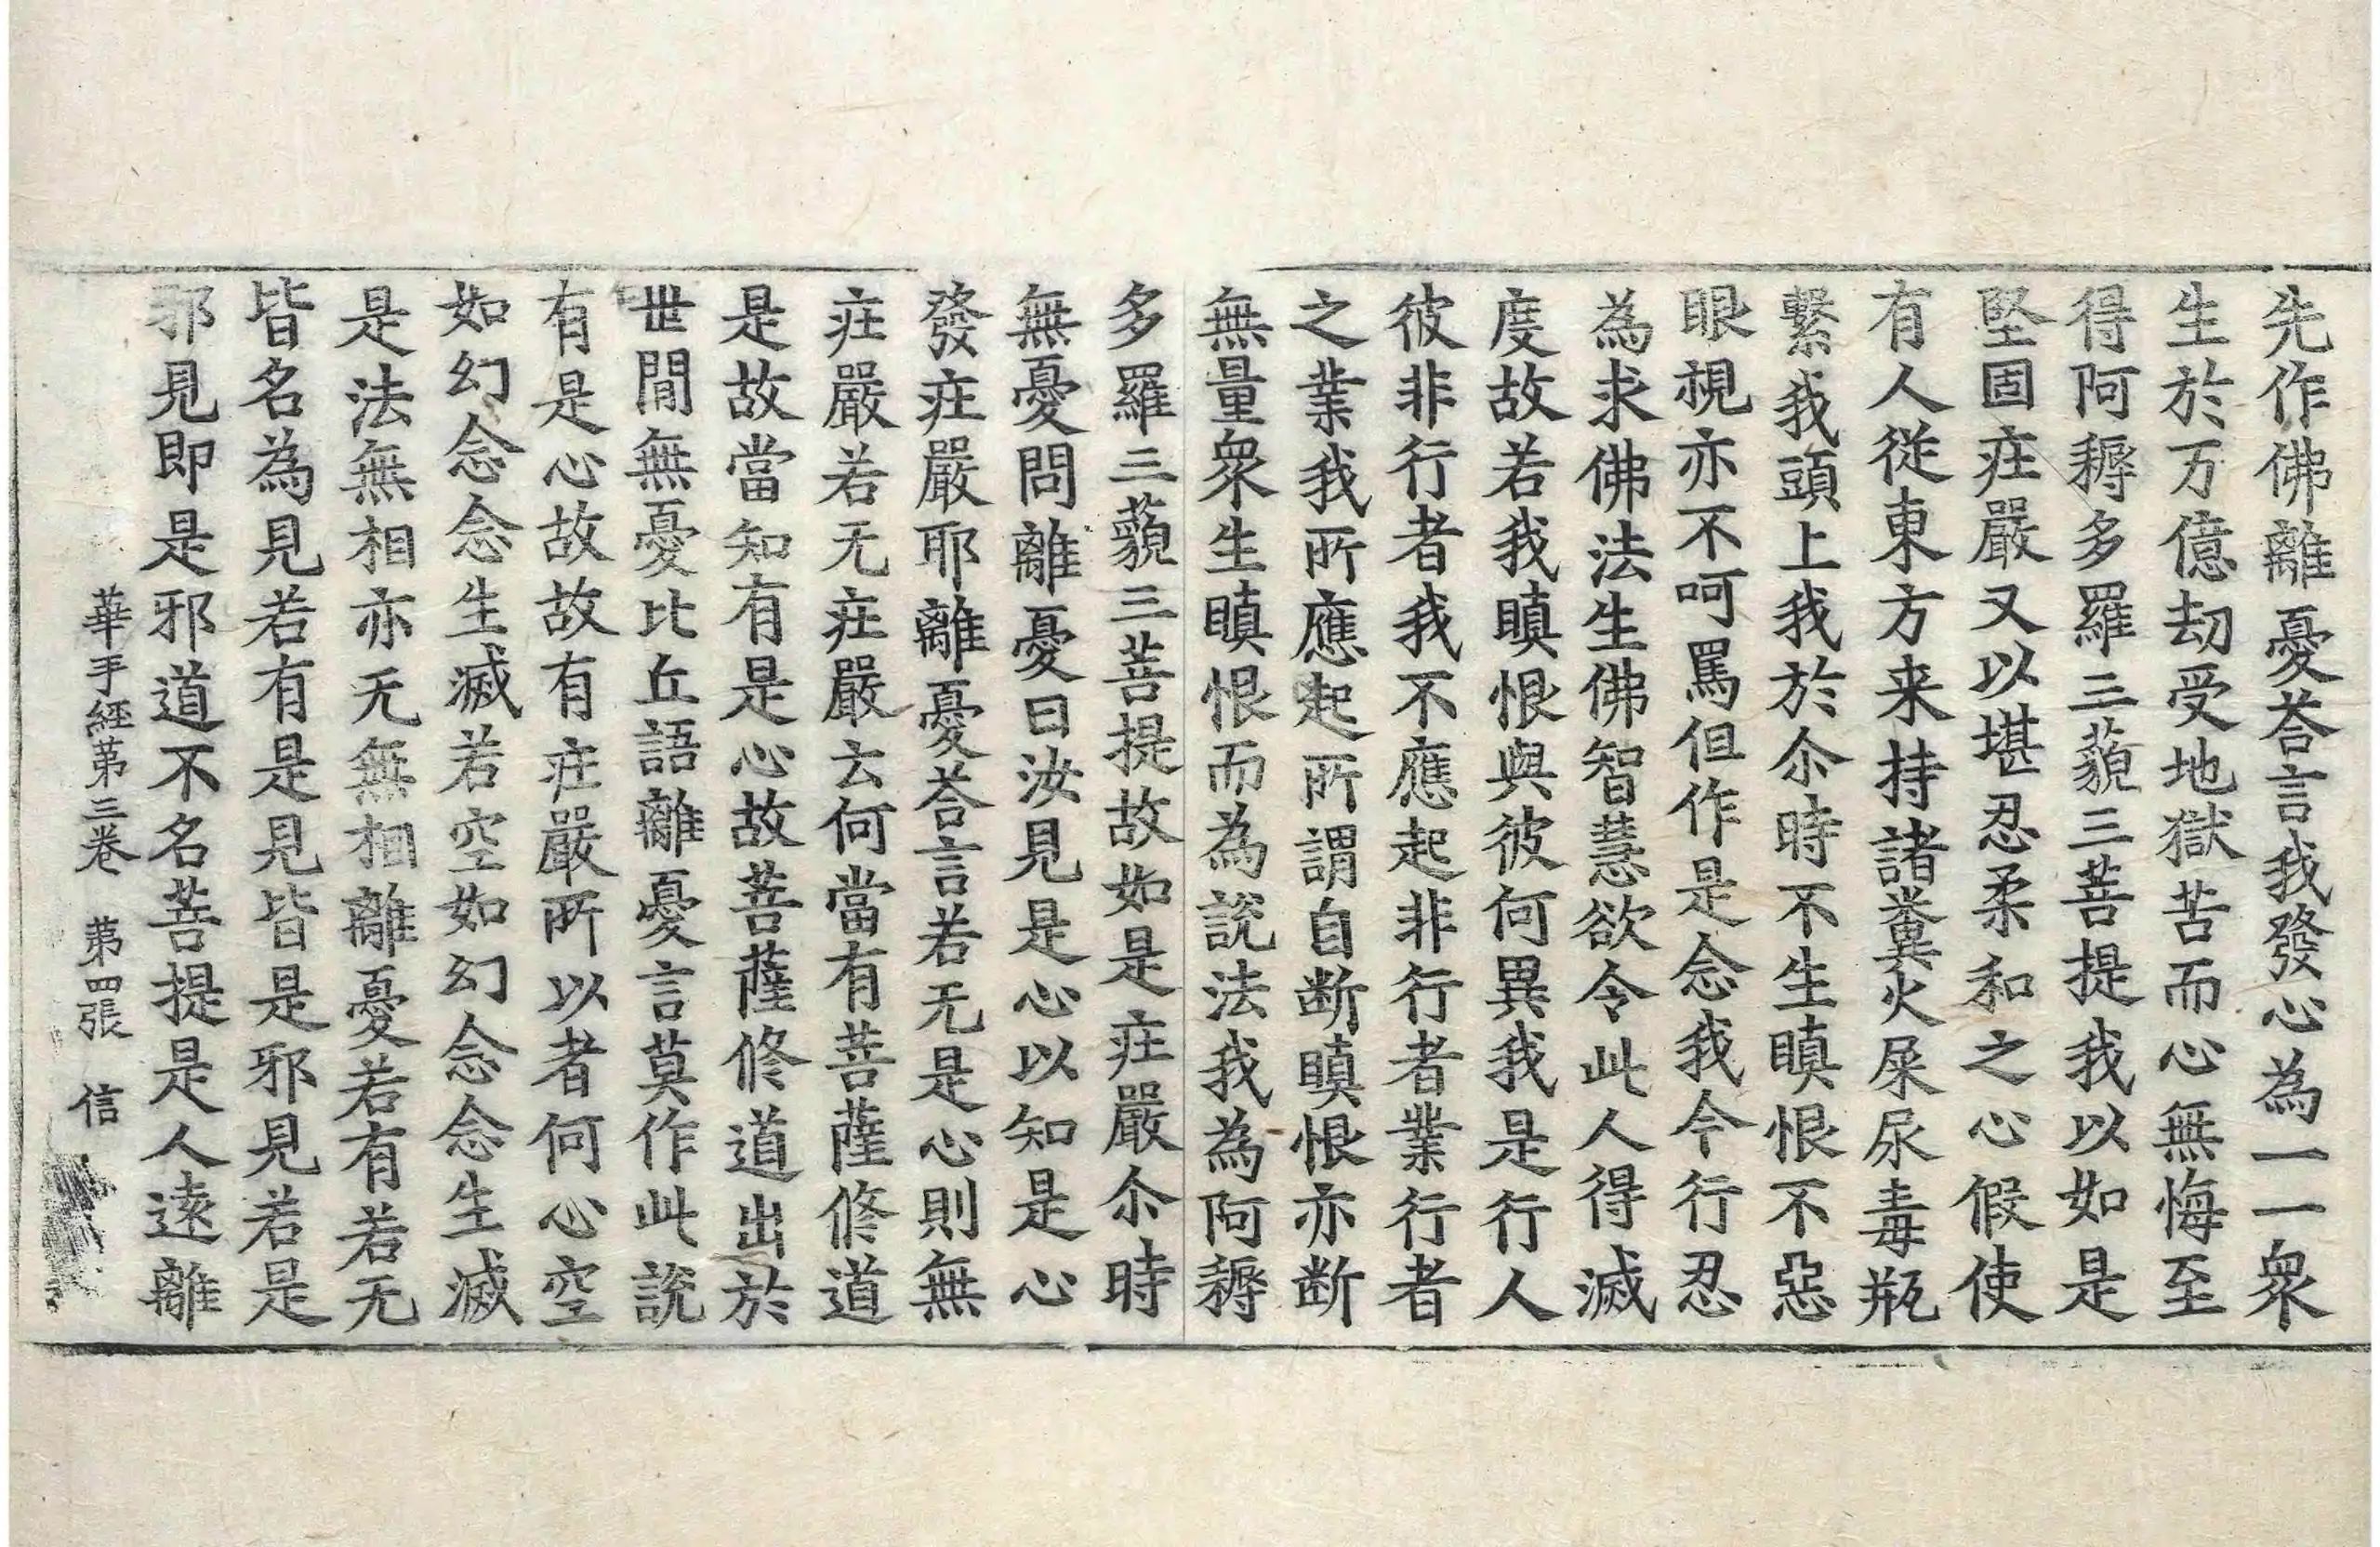 先作佛離憂荅言我發心為一一衆
生於万億劫受地獄苦而心無悔至
得阿耨多羅三藐三菩提我以如是
堅固疘嚴又以堪忍柔和之心假使
有人從東方来持諸糞火屎尿毒瓶
繫我頭上我於尒時不生瞋恨不惡
眼視亦不呵罵但作是念我今行忍
為求佛法生佛智慧欲令此人得滅
度故若我瞋恨與彼何異我是行人
彼非行者我不應起非行者業行者
之業我所應起所謂自断瞋恨亦断
無量衆生瞋恨而為説法我為阿耨
多羅三藐三菩提故如是疘嚴尒時
無憂問離憂曰汝見是心以知是心
發疘嚴耶離憂荅言若无是心則無
疘嚴若无疘嚴云何當有菩薩修道
是故當知有是心故菩薩修道出於
世間無憂比丘語離憂言莫作此説
有是心故故有疘嚴所以者何心空
如幻念念生滅若空如幻念念生滅
是法無相亦无無相離憂若有若无
皆名為見若有是見皆是邪見若是
邪見即是邪道不名菩提是人遠離
華手經第三卷　第四張　信